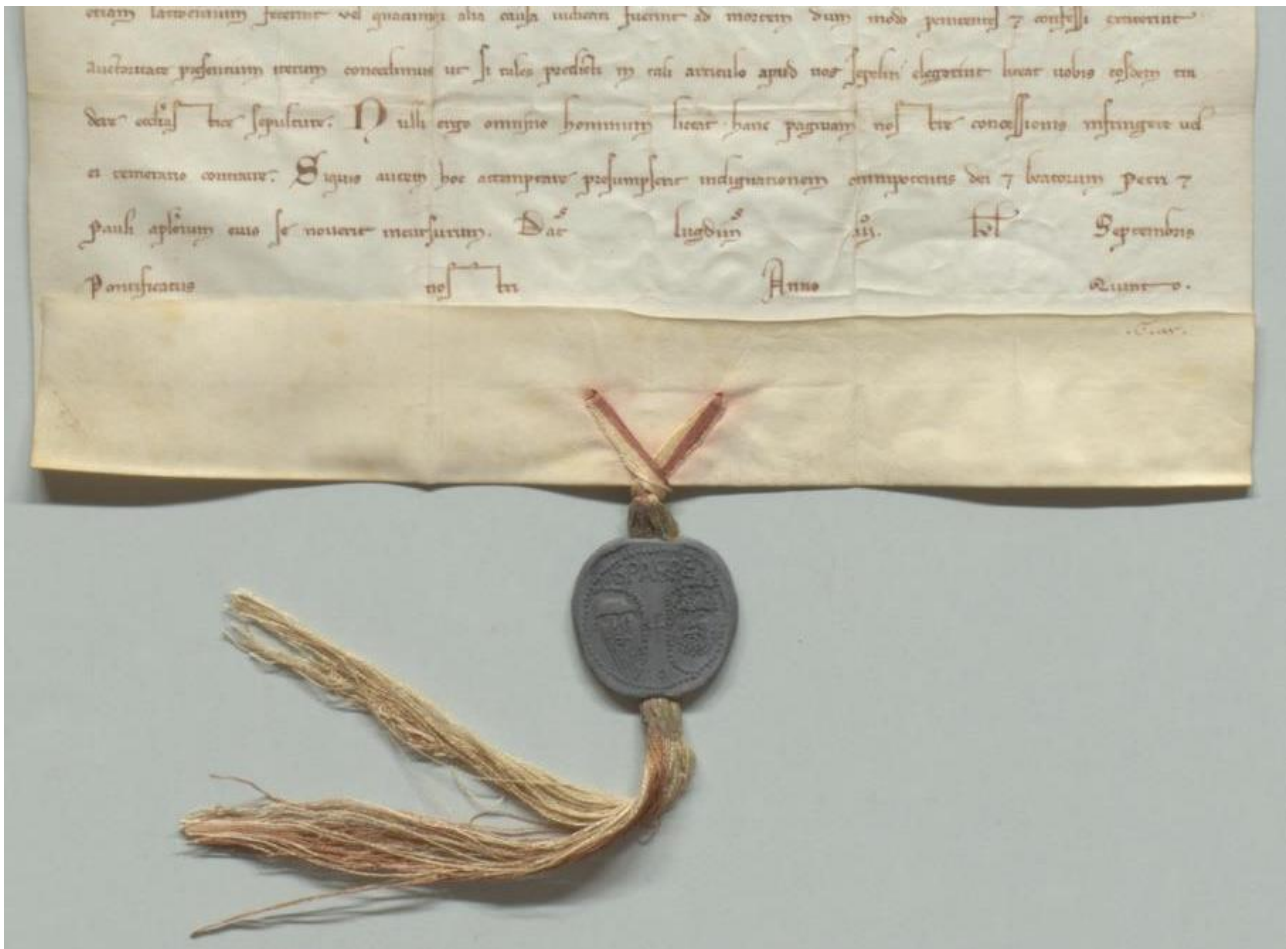 etiam latrocinium fecerint vel quacumq; alia causa iudicati fuerint ad mortem dum modo penitentes ⁊ confessi extiterint
auctoritate presentium iterum concedimus ut si tales predicti in tali articulo apud uos sepeliri elegerint liceat uobis eosdem tra
dere eccliastice sepulture. Nulli ergo omnino hominum liceat hanc paginam nostre concessionis infringere uel
ei temerario contraire. Siquis autem hoc attemptare presumpserit indignationem omnipotentis dei ⁊ beatorum Petri ⁊
Pauli aplorum eius se nouerit incursurum. Dat lugdun kl Septembris
Pontificatus nostri Anno Quinto.
SPASPE